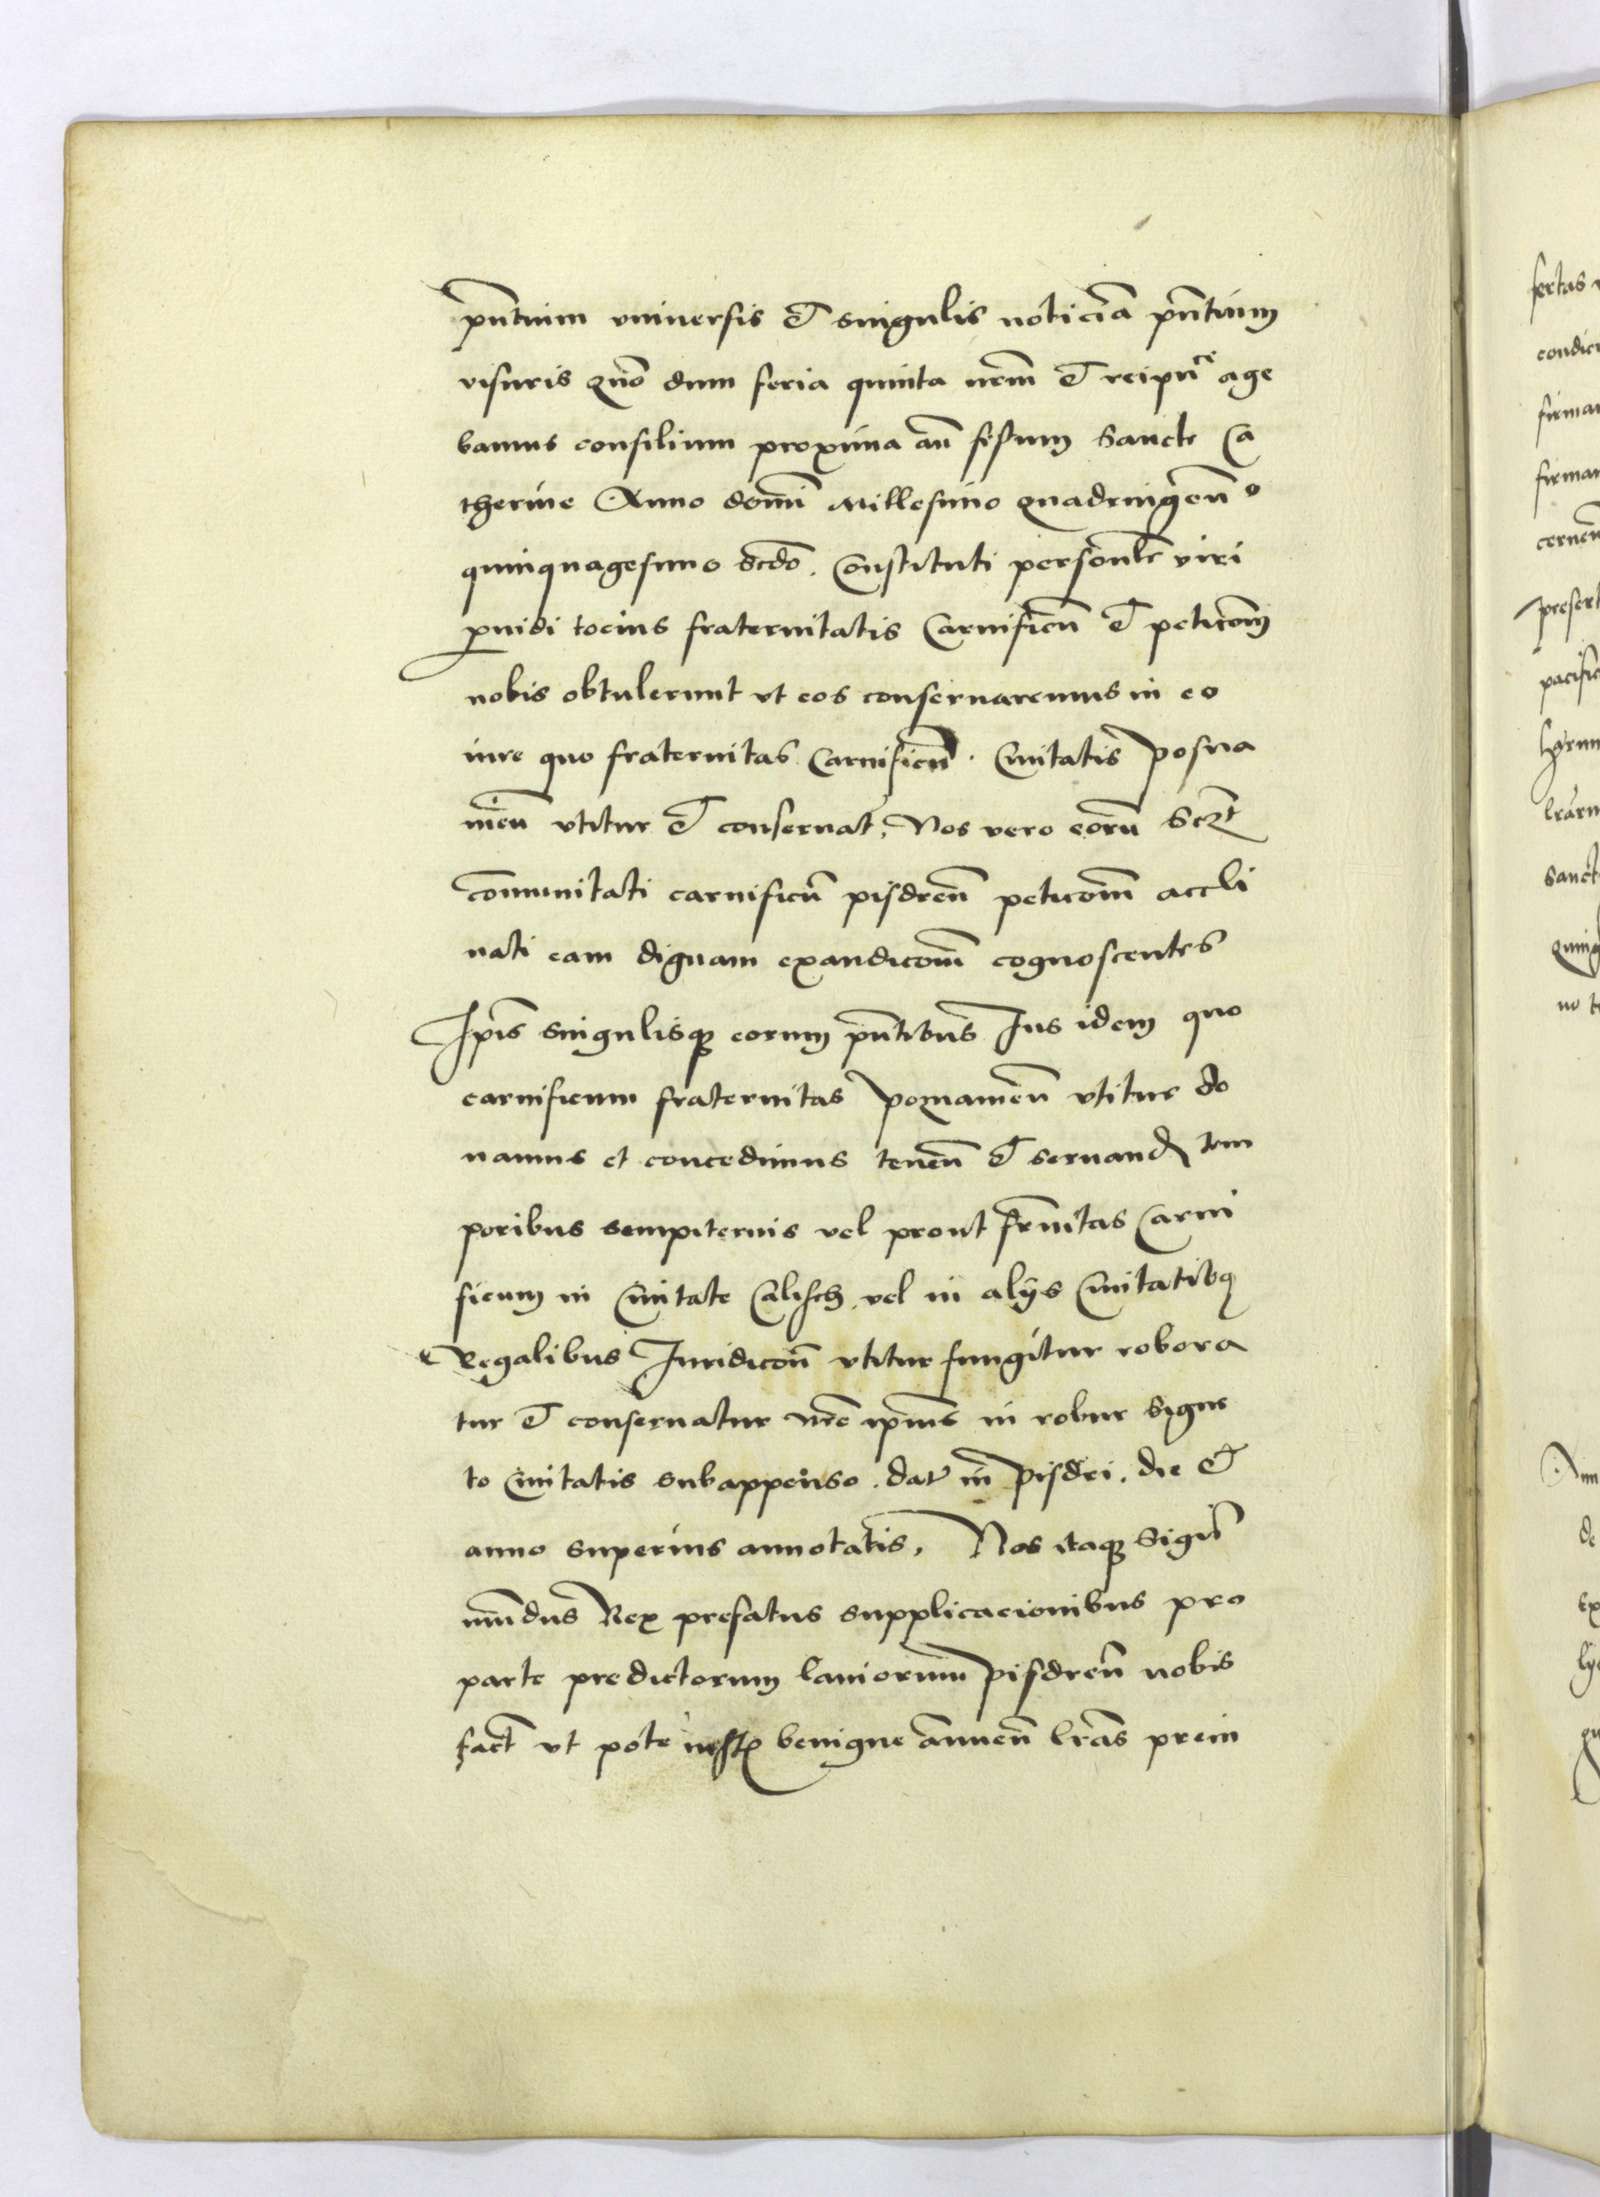 pntium vniuersis et singulis noticia pntium
visuris quo dum feria quinta nrm et reipu ce age
bamus consilium proxima an festum Sancte Ca
therine Anno domi Millesimo quadringen o
quinquagesimo scdo. Constituti personle viri
puidi tocius fraternitatis Carnificu et peticom
nobis obtulerunt vt eos conseruaremus in eo
iure quo fraternitas Carnificu. Ciuitatis Posna
nien vtitur et conseruat, Nos vero eoru
comunitati carnificu pisdren peticom accli
nati eam dignam exaudicom cognoscentes
Ipis singulisq eorum pntibus Ius idem quo
carnificum fraternitas Poznanien vtitur do
namus et concedimus tenen et seruand tem
poribus sempiternis vel prout frnitas Carni
ficum in Ciuitate Calisch vel in alijs Ciuitatibq
Regalibus Iuridicon vtitur fungitur robora
tur et conseruatur nre ipius in robur Signe
to Ciuitatis subappenso. dat in Pisdri. die et
anno superius annotatis. Nos itaq Sigis
mundus Rex prefatus supplicacionibus pro
parte predictorum laniorum Pisdren nobis
fact vt pote iustis benigne annuen lras prein
fertas
condici
firmar
firmar
cernen
presert
pacific
lraru
sancte
quing
no